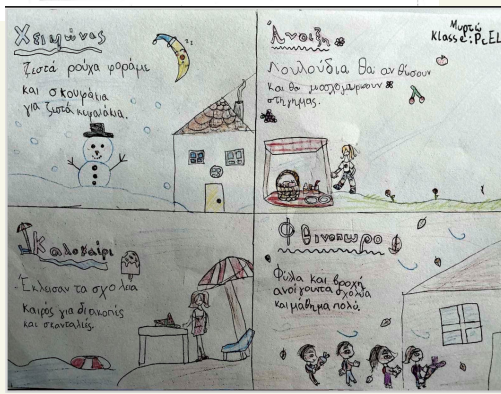 Χειμώνας
Ζεστά ρούχα φοράμε
και σκουφάκια
για ζεστά κεφαλάκια.
Άνοιξη
Μυρτώ
Klasse: P1EL
Λουλούδια θα ανθίσουν
και θα μοσχομυρίσουν
στη γη μας.
Καλοκαίρι
Έκλεισαν τα σχολεία
Καιρός για διακοπές
και σκανταλιές.
Φθινόπωρο
Φύλα και βροχή
ανοίγουν τα σχολία
και μάθημα πολύ.